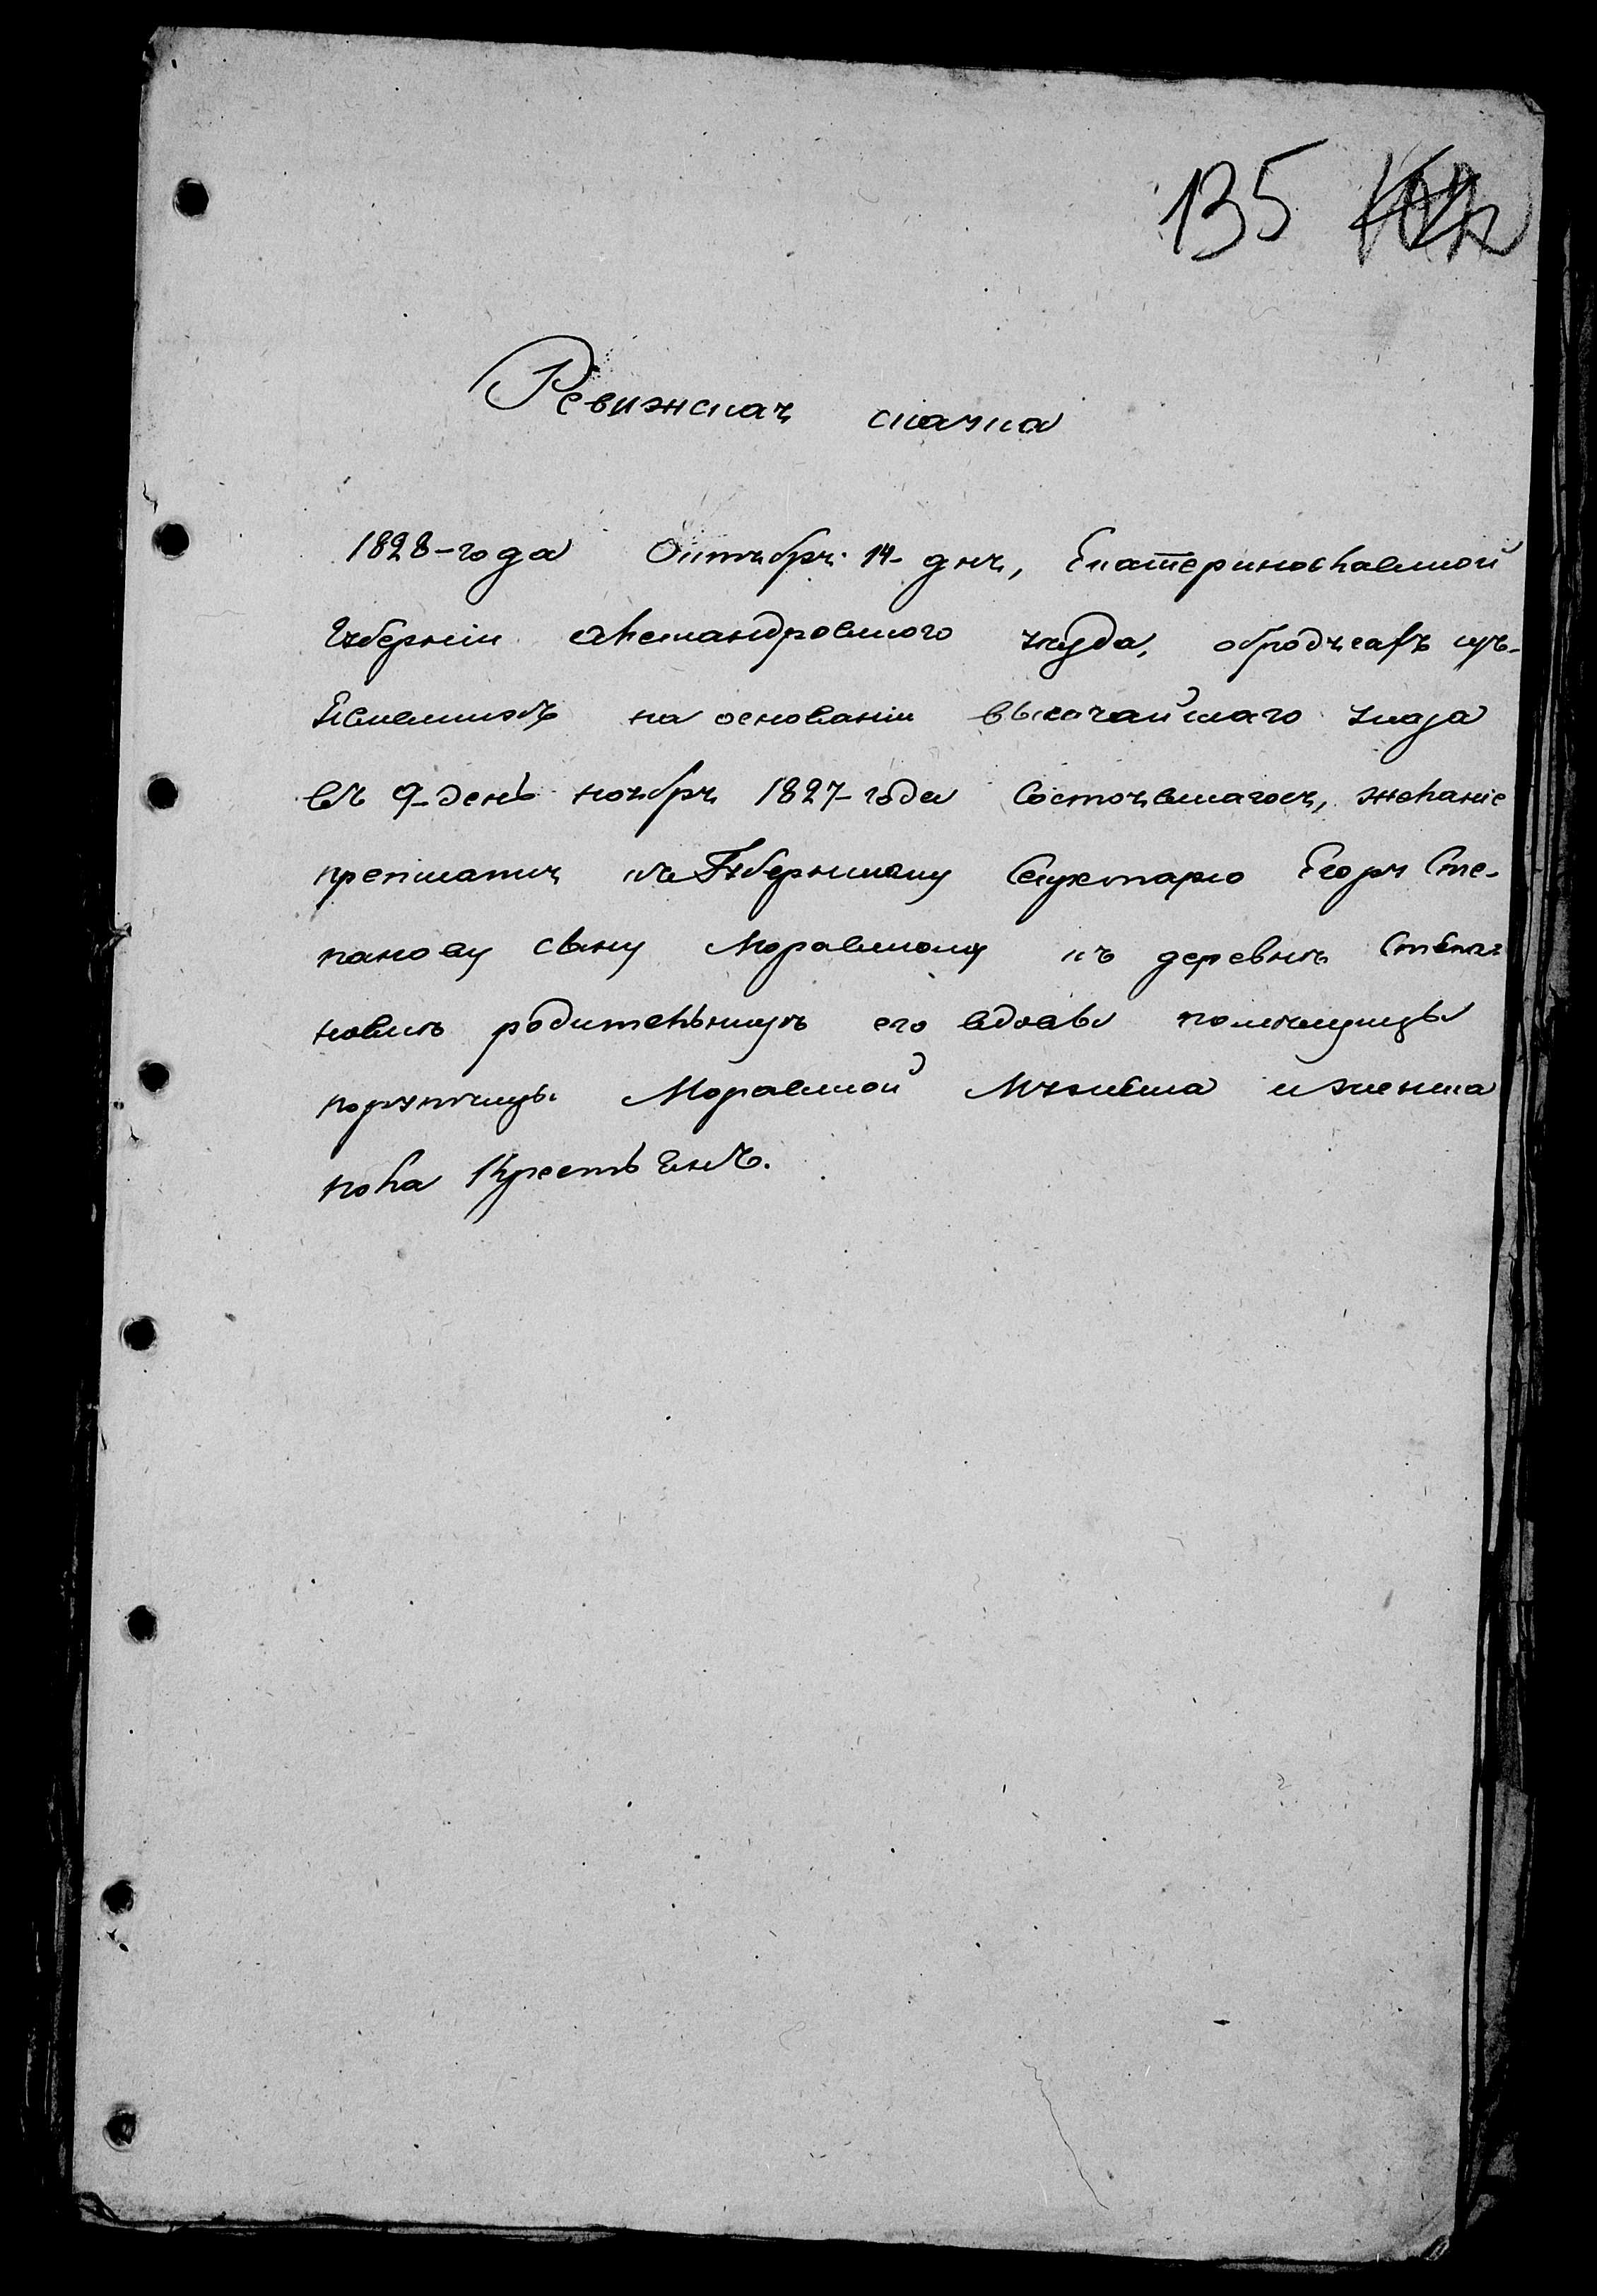 135
Ревижская скаска
1828-года Октября 14- дня, Екатеринославской
Губернiи Александровского уезда,
на основанiи высочайшаго указа
въ 9-день ноября 1827-года Состоявшагося, желанiе
преписатися къ Губернскому Секретарю Егору Сте-
панову сыну Моравскому къ деревнѣ Степа-
новкѣ родительницѣ его вдовы помѣщицы
порутчицы Моравской Мужеска и женска
пола Крестьянъ.